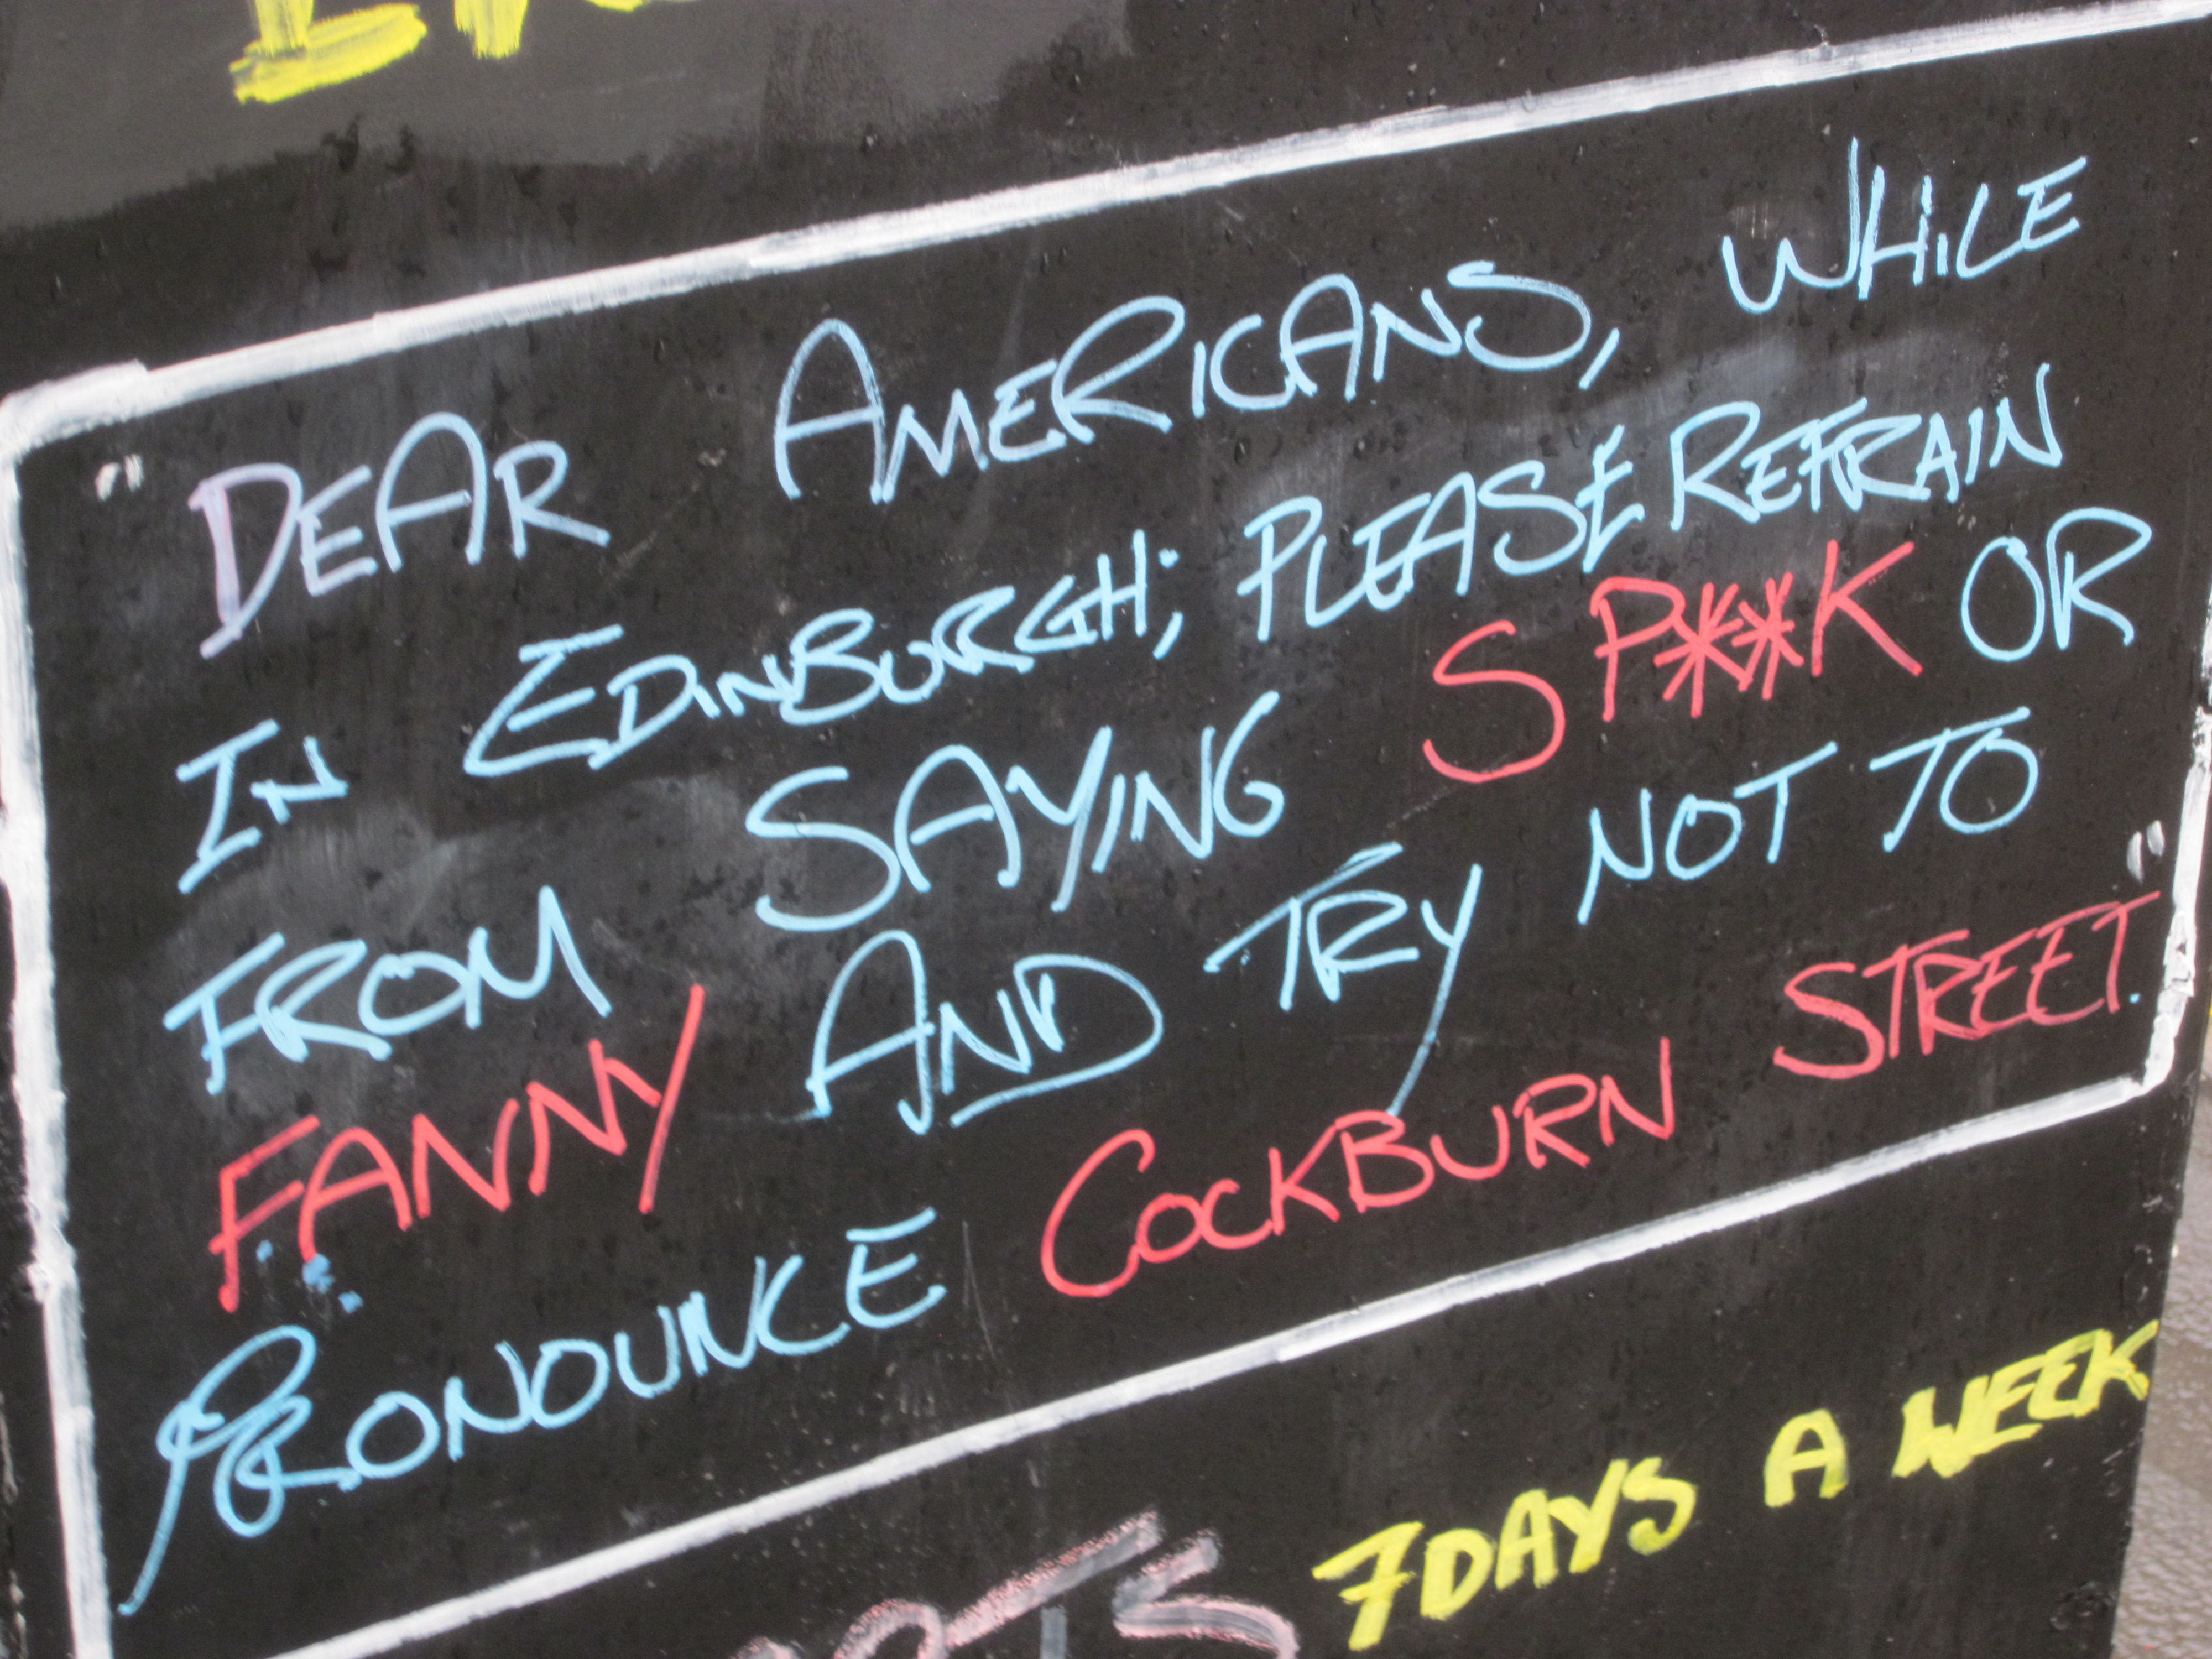 "DEAR AMERICANS, WHILE
IN EDINBURGH; PLEASE REFRAIN
FROM SAYING SP**K OR
FANNY AND TRY NOT TO
PRONOUNCE COCKBURN STREET."
7 DAYS A WEEK